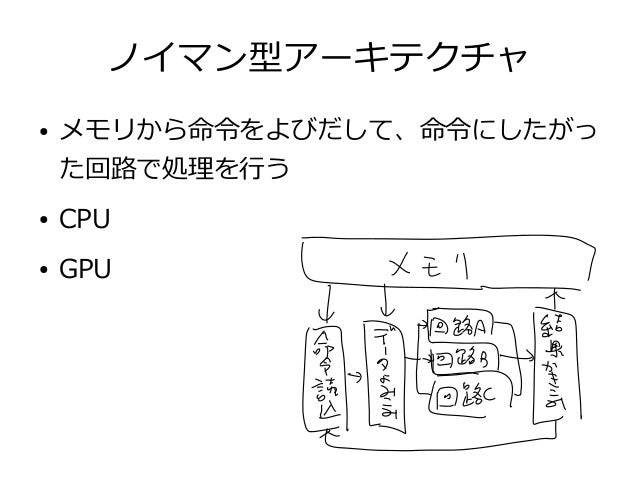 ノイマン型アーキテクチャ
• メモリから命令をよびだして、命令にしたがっ
た回路で処理を行う
• CPU
• GPU
メモリ
命令読込
データよみこみ
回路A
回路B
回路C
結果かきこみ